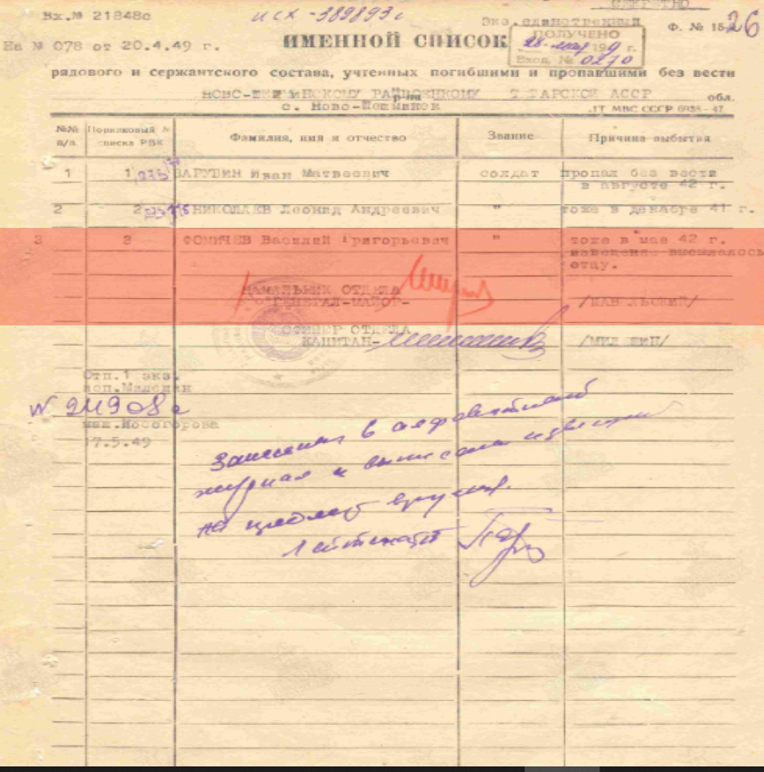 СЕКРЕТНО
Вх.№ 21848с исх -389893с Экз.единственный Ф. № 15 26
На № 078 от 20.4.49 г. ИМЕННОЙ СПИСОК ПОЛУЧЕНО
28 мая 1949 г.
Вход. № 0270
рядового и сержантского состава, учтенных погибшими и пропавшими без вести
НОВО-ШЕШМИНСКОМУ РАЙВОЕНКОМУ р-на ТАТАРСКОЙ АССР обл.
с. Ново-Шешминск
№№ п/п. Порядковый № списка РВК Фамилия, имя и отчество Звание Причина выбытия
1 1 ЗАРУБИН Иван Матвеевич солдат пропал без вести
в августе 42 г.
2 2 НИКОЛАЕВ Леонид Андреевич " тоже в декабре 41 г.
3 3 ФОМИЧЕВ Василий Григорьевич " тоже в мае 42 г.
извещение высылалось
отцу.
НАЧАЛЬНИК ОТДЕЛА
ГЕНЕРАЛ-МАЙОР-
ОФИЦЕР ОТДЕЛА
КАПИТАН-
Отп.1 экз.
исп.
№ 91908с
маш.
17.5.49
Занесены в алфавитный
журнал и выписаны извещения
лейтенант